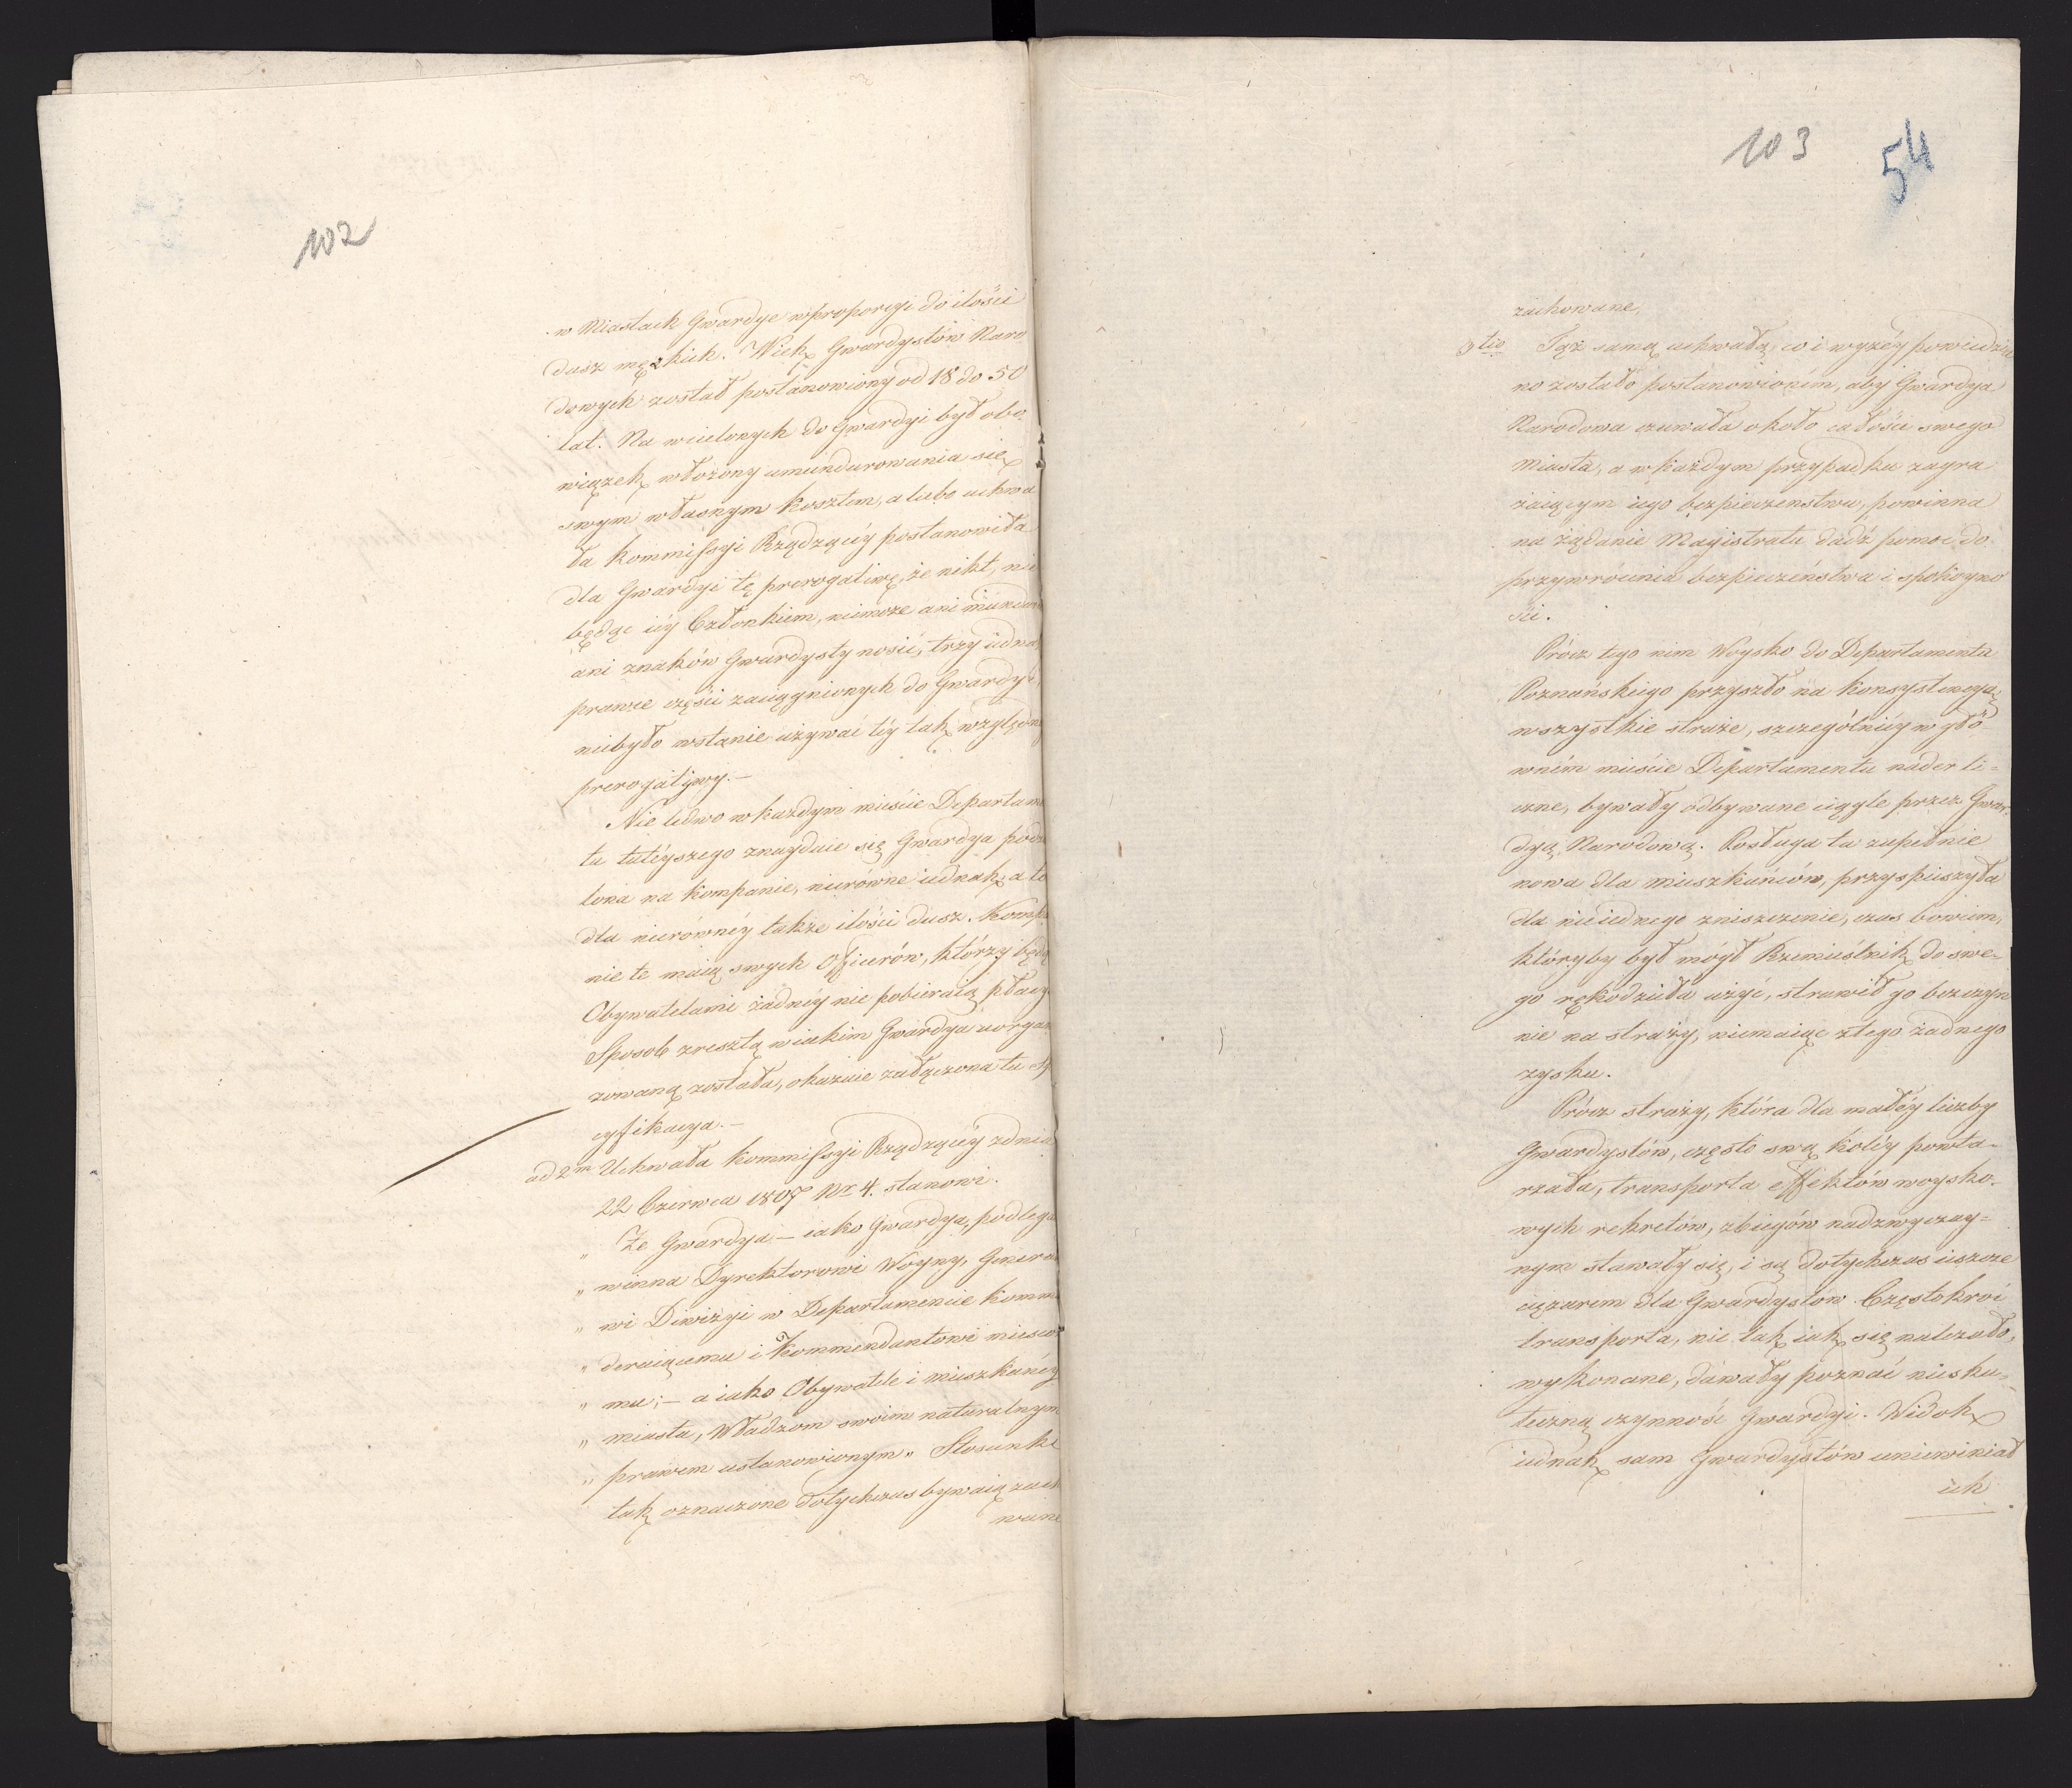 102
w Miastach Gwardye w proporcyi do ilości
dusz męzkich. Wiek Gwardystów Naro
dowych został postanowiony od 18 do 50
lat. Na wcielonych do Gwardyi był obo
wiązek włożony umundurowania się
swym własnym kosztem, a lubo uchwa
ła Kommissyi Rządzącéy postanowiła
dla Gwardyi tę prerogatiwę, że nikt, nie
będąc iéy Członkiem, niemoże ani mundur
ani znaków Gwardysty nosić, trzy iedna
prawie części zaciągnionych do Gwardyi,
niebyło wstanie używać téy tak względné
prerogatywy. —
Nie ledwo w każdym mieście Departame
tu tutéyszego znayduie się Gwardya podz
lona na kompanie, nierówne iednak, a to
dla nierównéy także ilości dusz. Kompa
nie te maią swych Officerów, którzy będą
Obywatelami żadnéy nie pobieraią płacy.
Sposob zresztą w iakim Gwardya uorgan
zowaną została, okazuie załączona tu Sp
cyfikacya. —
ad 2m Uchwała Kommissyi Rządzącéy zdnia
22 Czerwca 1807 Nr 4. stanowi.
„ Że Gwardya — iako Gwardya, podlega
„ winna Dyrektorowi Woyny, Generał
„ wi Diwizyi w Departamencie komm
„ deruiącemu i Kommendantowi miesco
„ mu; — a iako Obywatele i mieszkańcy
„ miasta, Władzom swoim naturalnym
„ prawem ustanowionym „ Stosunki
tak oznaczone dotychczas bywaią zach
wane
103
54
zachowane,
3tio Tąż samą uchwałą, co i wyżéy powiedzia
no zostało postanowioném, aby Gwardya
Narodowa czuwała około całości swego
miasta, a w każdym przypadku zagra
żaiącym iego bezpieczenstwu, powinna
na żądanie Magistratu dadź pomoc do
przywrócenia bezpieczeństwa i spokoyno
ści.
Prócz tego nim Woysko do Departamentu
Poznańskiego przyszło na konsystencyą,
wszystkie straże, szczególniéy w głó
wném mieście Departamentu nader li=
czne, bywały odbywane ciągle przez Gwar
dyą Narodową. Posługa ta zupełnie
nowa dla mieszkańców, przyspieszyła
dla nieiednego zniszczenie, czas bowiem,
któryby był mógł Rzemieślnik do swe=
go rękodzieła użyć, strawił go bezczyn
nie na straży, niemaiąc ztego żadnego
zysku.
Prócz straży, która dla małéy liczby
Gwardystów, często swą koléy powta=
rzała, transporta effektów woysko=
wych rekretów, zbiegów nadzwyczay=
nym stawały się, i są dotychczas ieszcze
ciężarem dla Gwardystów. Częstokroć
transporta, nie tak iak się należało,
wykonane, dawały poznać niesku=
teczną czynność Gwardyi. Widok
iednak sam Gwardystów uniewiniał
ich